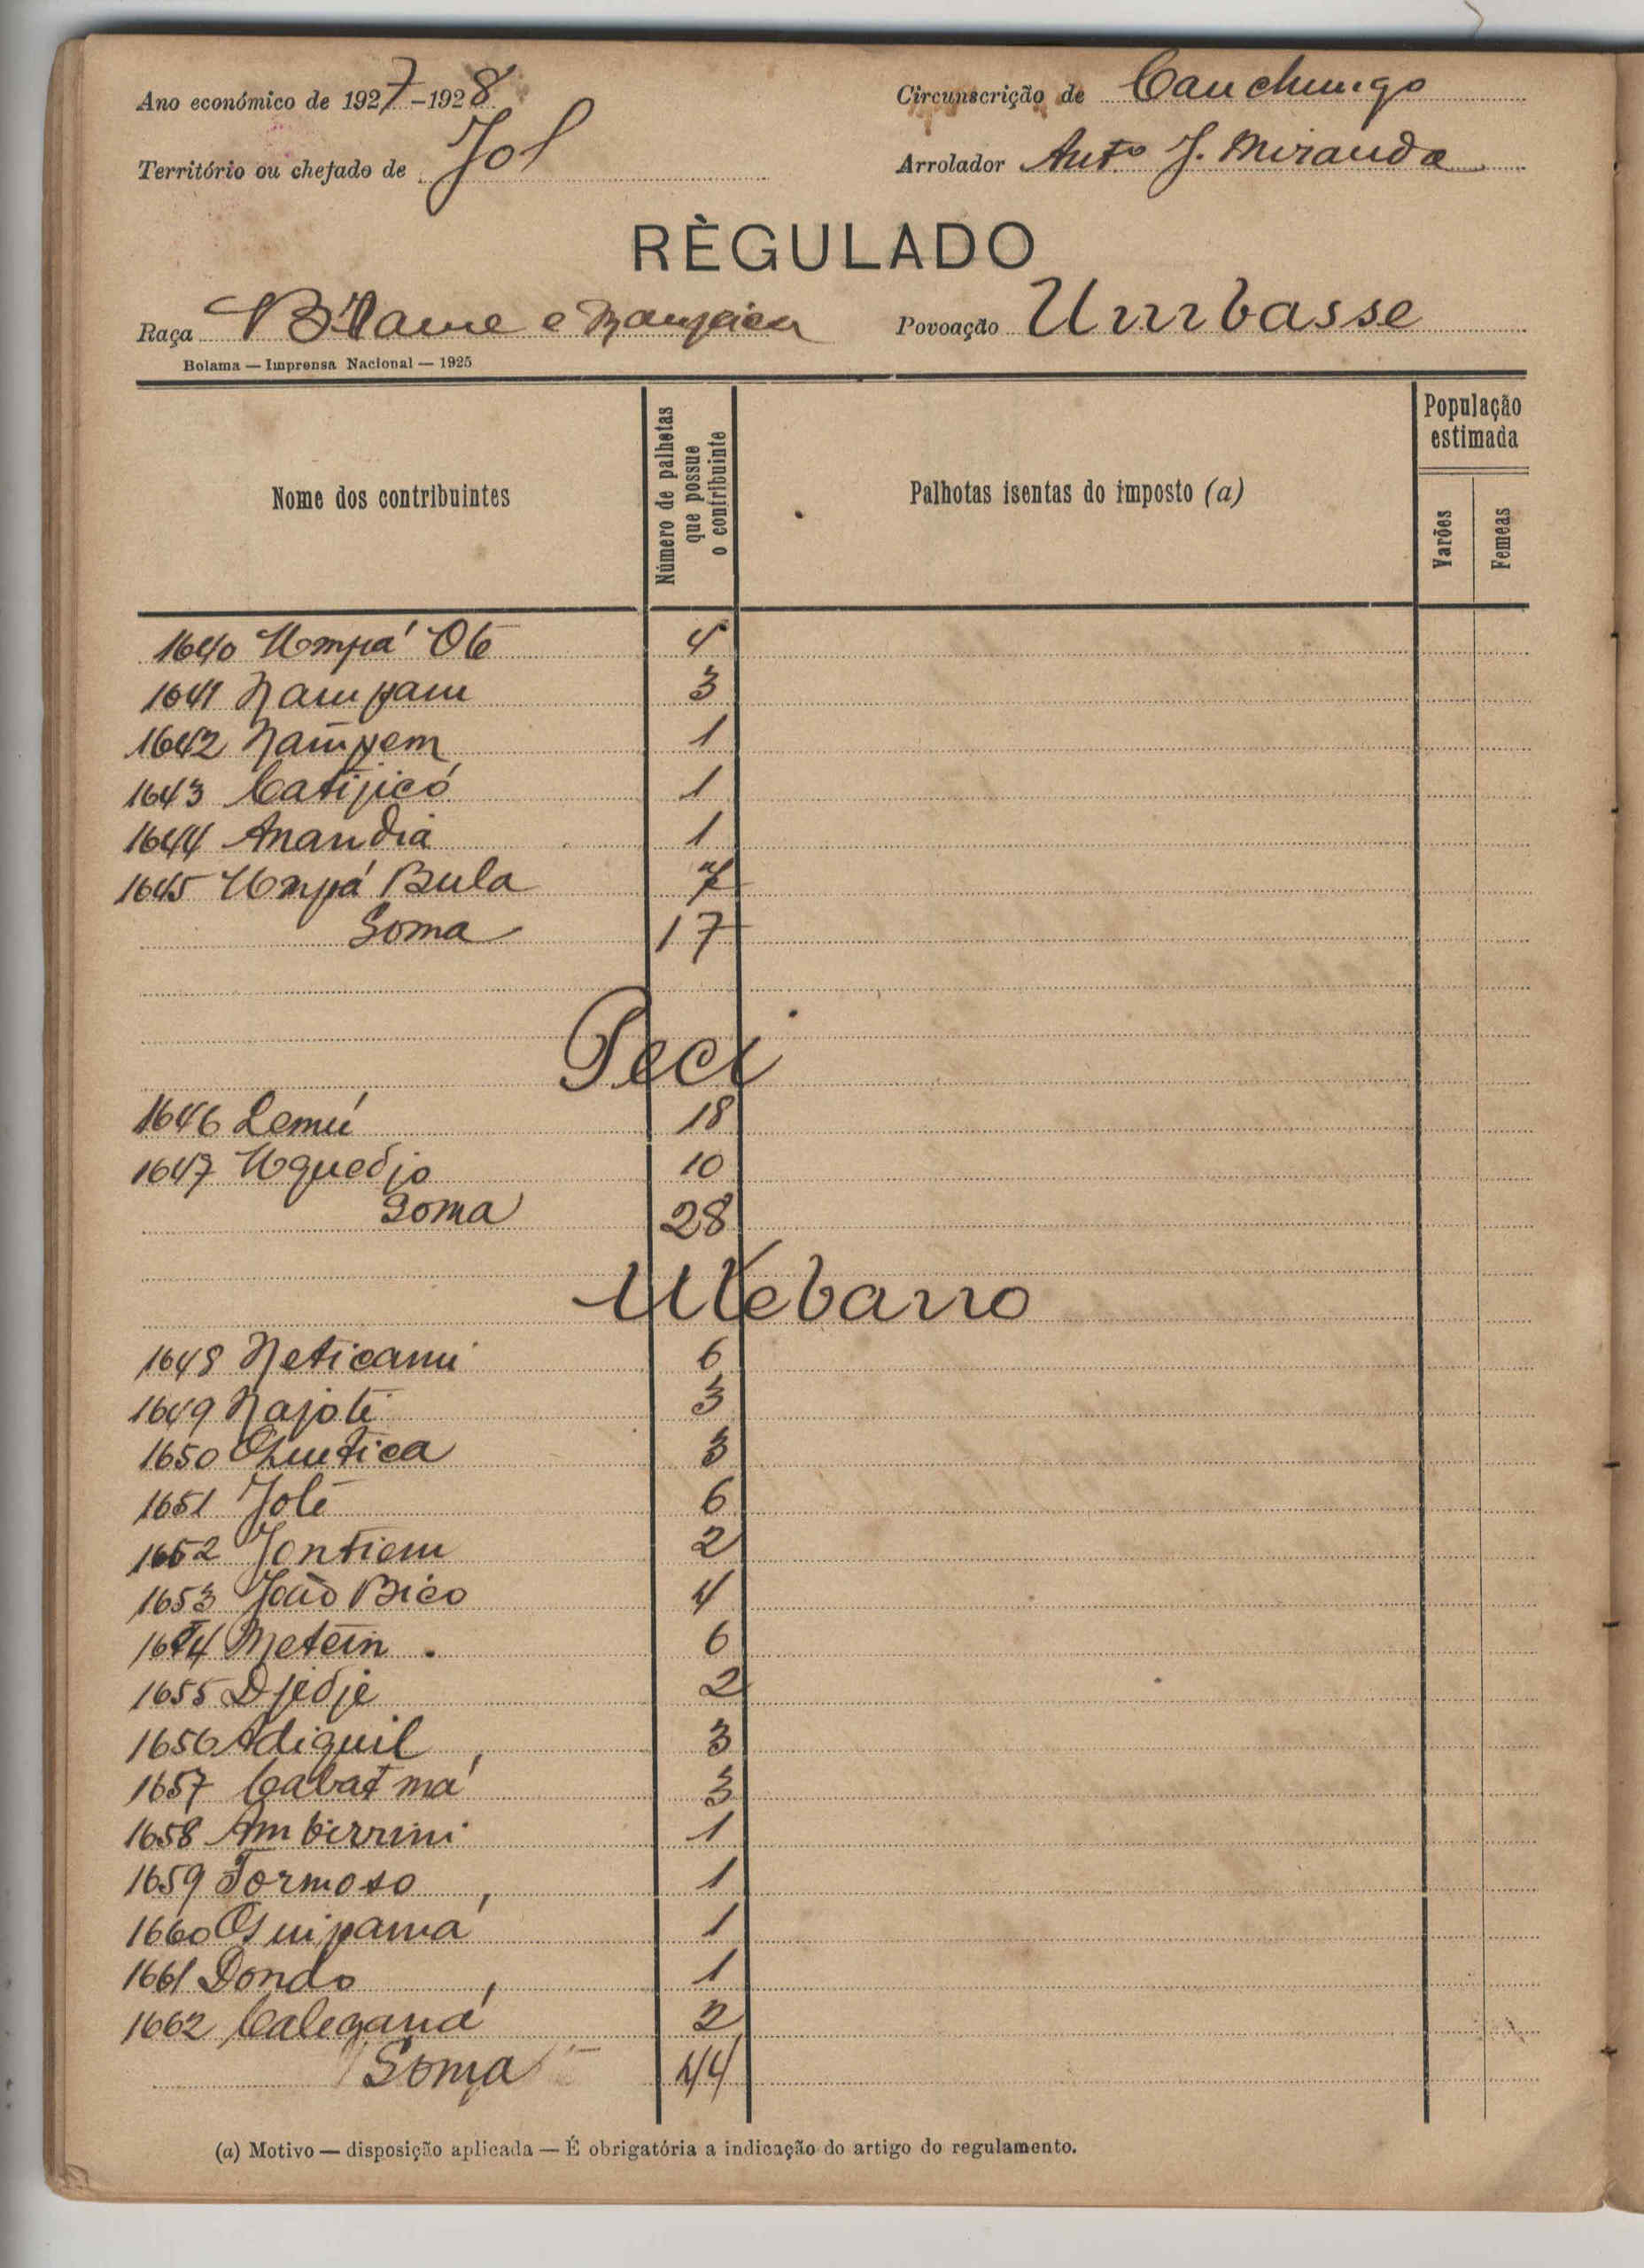 Ano económico de 1927-1928
Circunscrição de Cauchungo
Território ou chefado de Jol
Arrolador Anto J. Miranda
RÈGULADO
Raça Brame e
Povoação Umbasse
Bolama — Imprensa Nacional — 1925
Nome dos contribuintes
Número de palhotas que possue o contribuinte
Palhotas isentas do imposto (a)
População estimada
Varões
Femeas
1640 Umpá Ote 4
1641 Nampam 3
1642 Nampem 1
1643 Catijicó 1
1644 Anandia 1
1645 Umpá Bula 7
Soma 17
Peci
1646 Lemú 18
1647 Uguedjo 10
Soma 28
Utebarro
1648 Neticami 6
1649 Najoté 3
1650 3
1651 Jolé 6
1652 Jontiem 2
1653 João Bico 4
1654 Metein 6
1655 Djédje 2
1656 Adiguil 3
1657 Cabatmá 3
1658 Ambirrini 1
1659 Formoso 1
1660 1
1661 Dondo 1
1662 2
Soma 44
(a) Motivo — disposição aplicada — É obrigatória a indicação do artigo do regulamento.